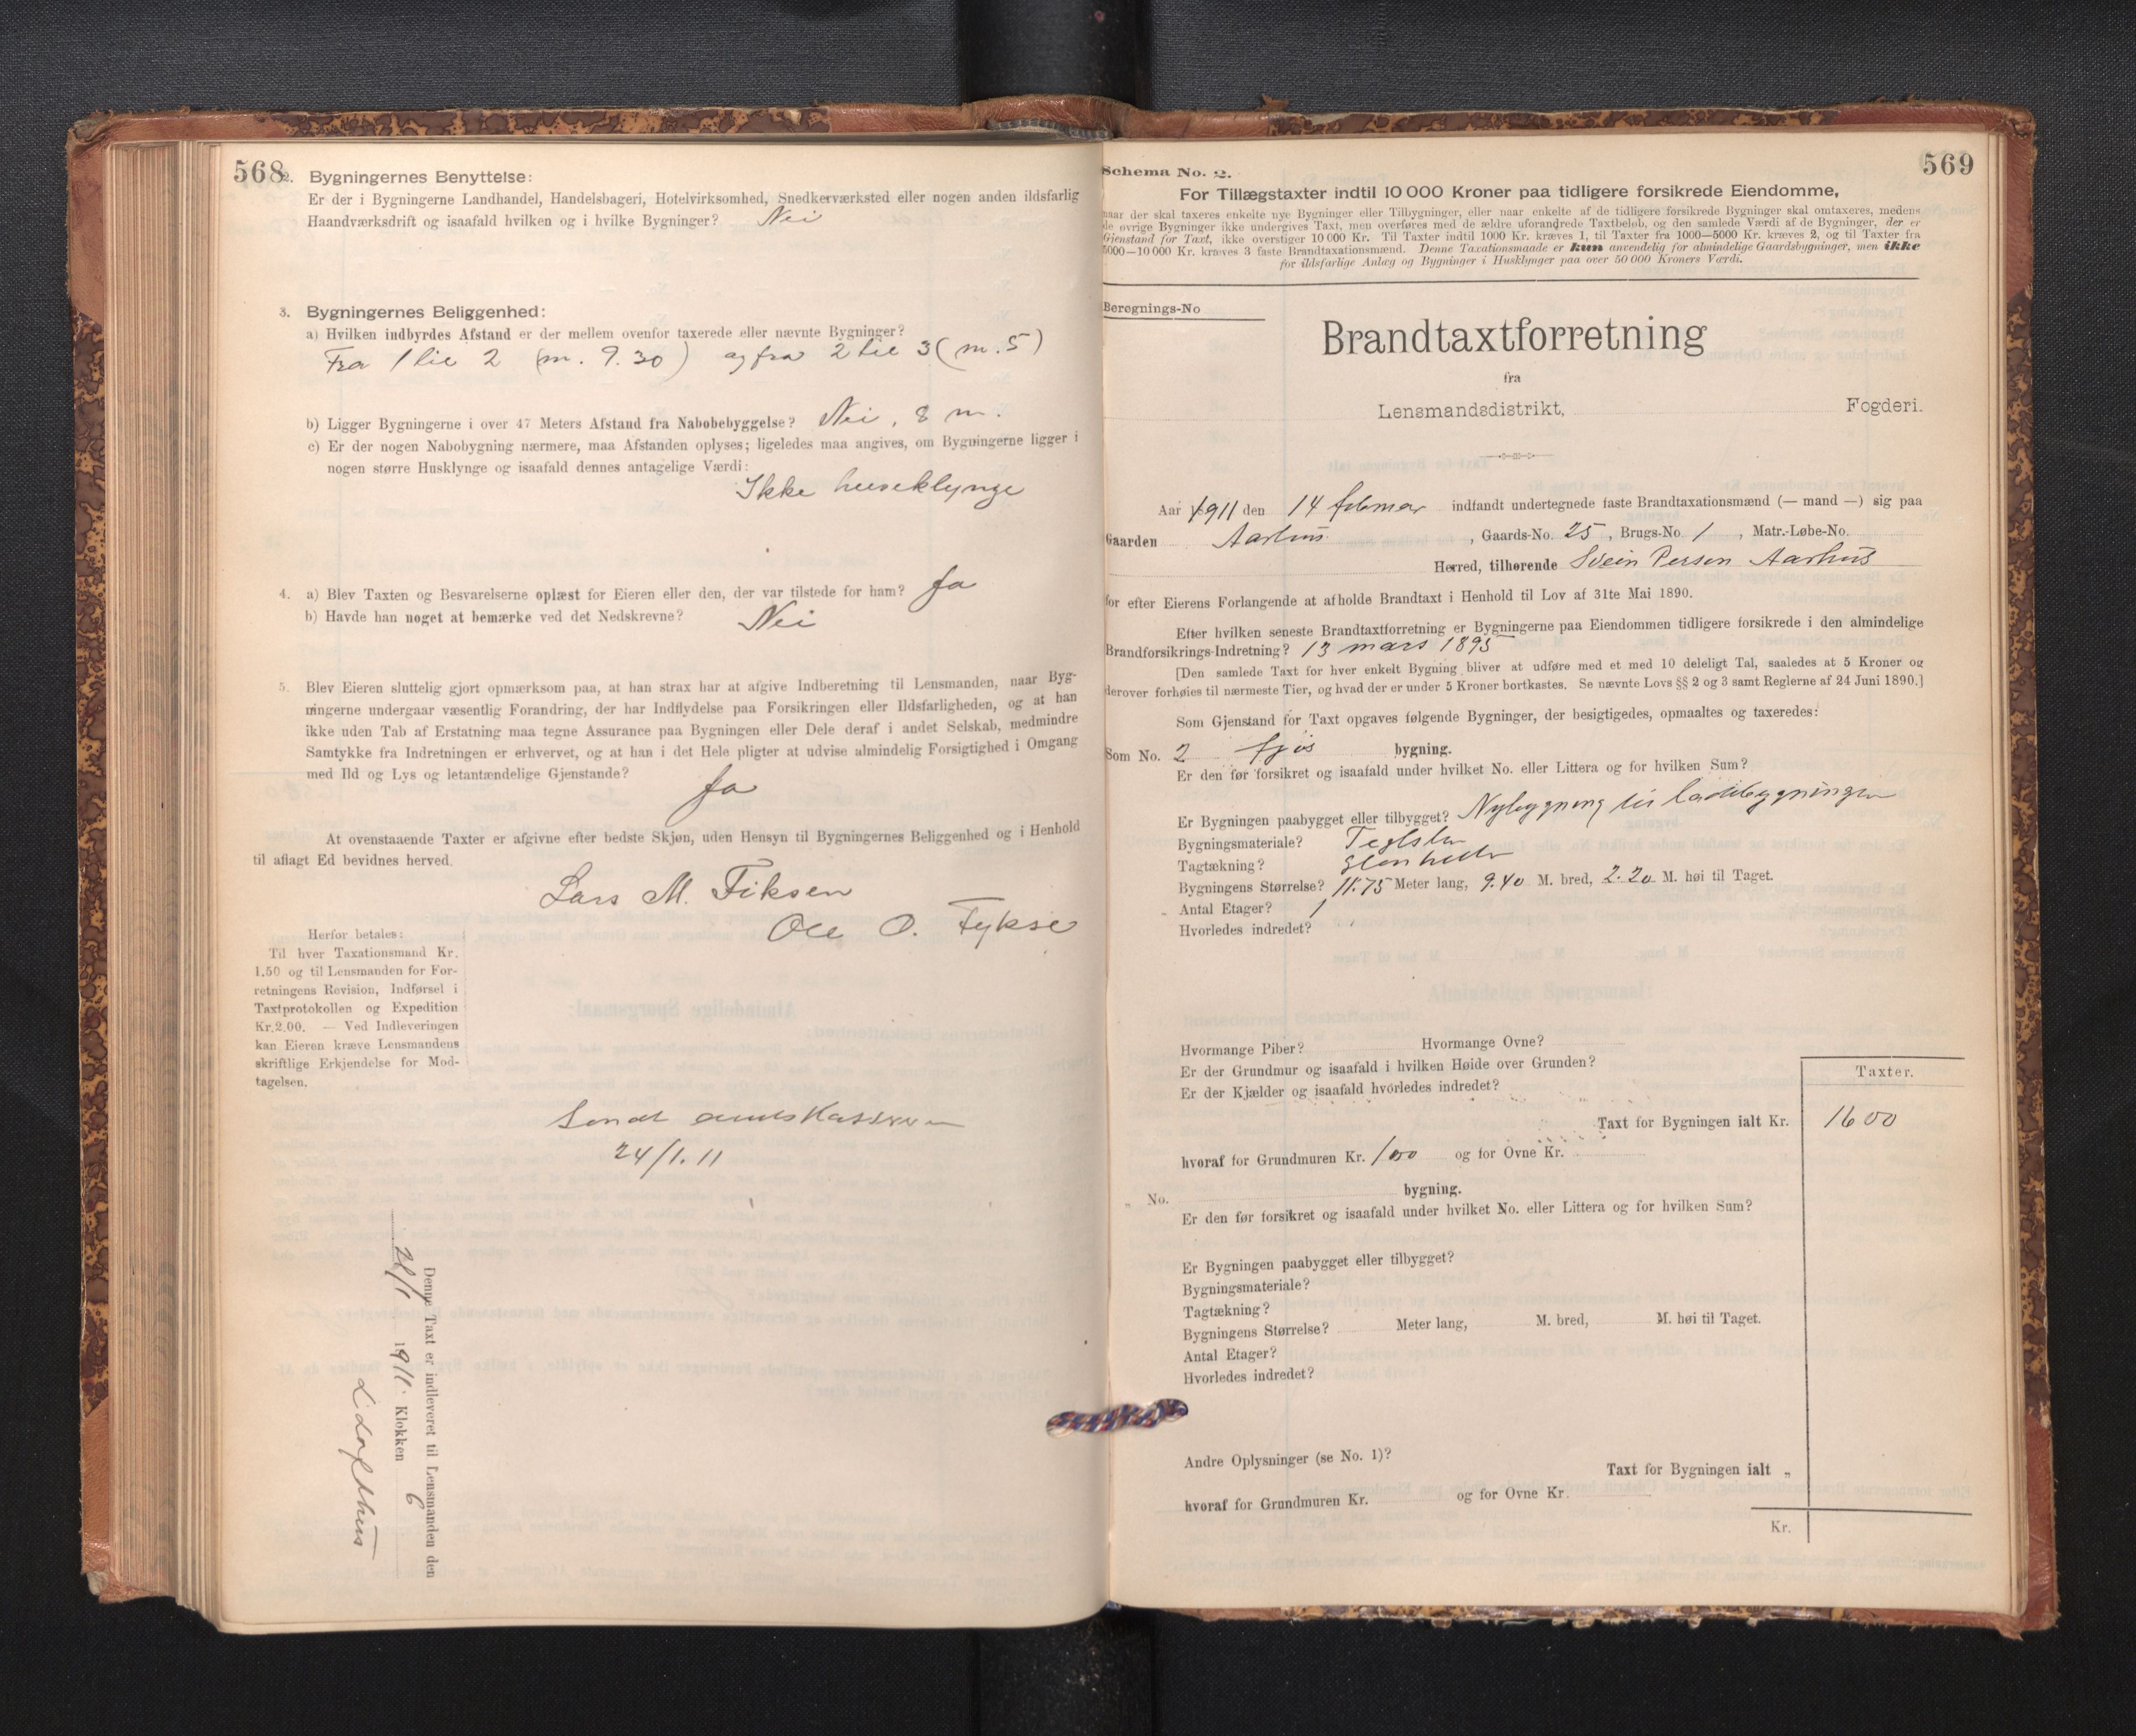 568
2. Bygningernes Benyttelse:
Er der i Bygningerne Landhandel, Handelsbageri, Hotelvirksomhed, Snedkerværksted eller nogen anden ildsfarlig
Haandværksdrift og isaafald hvilken og i hvilke Bygninger? Nei
3. Bygningernes Beliggenhed:
a) Hvilken indbyrdes Afstand er der mellem ovenfor taxerede eller nævnte Bygninger?
Fra 1 til 2 (m. 9.30) og fra 2 til 3 (m. 5)
b) Ligger Bygningerne i over 47 Meters Afstand fra Nabobebyggelse? Nei, 8 m.
c) Er der nogen Nabobygning nærmere, maa Afstanden oplyses; ligeledes maa angives, om Bygningerne ligger i
nogen større Husklynge og isaafald dennes antagelige Værdi:
Ikke huseklynge
4. a) Blev Taxten og Besvarelserne oplæst for Eieren eller den, der var tilstede for ham? Ja
b) Havde han noget at bemærke ved det Nedskrevne? Nei
5. Blev Eieren sluttelig gjort opmærksom paa, at han strax har at afgive Indberetning til Lensmanden, naar Byg-
ningerne undergaar væsentlig Forandring, der har Indflydelse paa Forsikringen eller Ildsfarligheden, og at han
ikke uden Tab af Erstatning maa tegne Assurance paa Bygningen eller Dele deraf i andet Selskab, medmindre
Samtykke fra Indretningen er erhvervet, og at han i det Hele pligter at udvise almindelig Forsigtighed i Omgang
med Ild og Lys og letantændelige Gjenstande?
Ja
At ovenstaaende Taxter er afgivne efter bedste Skjøn, uden Hensyn til Bygningernes Beliggenhed og i Henhold
til aflagt Ed bevidnes herved.
Lars M. Fiksen
Ole O. Fykse
Herfor betales:
Til hver Taxationsmand Kr.
1.50 og til Lensmanden for For-
retningens Revision, Indførsel i
Taxtprotokollen og Expedition
Kr. 2.00. — Ved Indleveringen
kan Eieren kræve Lensmandens
skriftlige Erkjendelse for Mod-
tagelsen.
Sendt amtskassereren
24/1. 11
Denne Taxt er indleveret til Lensmanden den
24/1 1911. Klokken 6
569
Schema No. 2.
For Tillægstaxter indtil 10 000 Kroner paa tidligere forsikrede Eiendomme,
naar der skal taxeres enkelte nye Bygninger eller Tilbygninger, eller naar enkelte af de tidligere forsikrede Bygninger skal omtaxeres, medens
de øvrige Bygninger ikke undergives Taxt, men overføres med de ældre uforandrede Taxtbeløb, og den samlede Værdi af de Bygninger, der er
Gjenstand for Taxt, ikke overstiger 10 000 Kr. Til Taxter indtil 1000 Kr. kræves 1, til Taxter fra 1000—5000 Kr. kræves 2, og til Taxter fra
5000—10 000 Kr. kræves 3 faste Brandtaxationsmænd. Denne Taxationsmaade er kun anvendelig for almindelige Gaardsbygninger, men ikke
for ildsfarlige Anlæg og Bygninger i Husklynger paa over 50 000 Kroners Værdi.
Beregnings-No
Brandtaxtforretning
fra
Lensmandsdistrikt, Fogderi.
Aar 1911 den 14 februar indfandt undertegnede faste Brandtaxationsmænd (— mand —) sig paa
Gaarden Aarhus, Gaards-No. 25, Brugs-No. 1, Matr.-Løbe-No.
Herred, tilhørende Svein Person Aarhus
for efter Eierens Forlangende at afholde Brandtaxt i Henhold til Lov af 31te Mai 1890.
Efter hvilken seneste Brandtaxtforretning er Bygningerne paa Eiendommen tidligere forsikrede i den almindelige
Brandforsikrings-Indretning? 13 mars 1895
[Den samlede Taxt for hver enkelt Bygning bliver at udføre med et med 10 deleligt Tal, saaledes at 5 Kroner og
derover forhøies til nærmeste Tier, og hvad der er under 5 Kroner bortkastes. Se nævnte Lovs §§ 2 og 3 samt Reglerne af 24 Juni 1890.]
Som Gjenstand for Taxt opgaves følgende Bygninger, der besigtigedes, opmaaltes og taxeredes:
Som No. 2 fjøs bygning.
Er den før forsikret og isaafald under hvilket No. eller Littera og for hvilken Sum?
Er Bygningen paabygget eller tilbygget? Nybygning til ladebygningen
Bygningsmateriale? Teglsten
Tagtækning? Stenheller
Bygningens Størrelse? 11.75 Meter lang, 9.40 M. bred, 2.20 M. høi til Taget.
Antal Etager? 1
Hvorledes indredet?
Hvormange Piber? Hvormange Ovne?
Er der Grundmur og isaafald i hvilken Høide over Grunden?
Er der Kjælder og isaafald hvorledes indredet?
Taxter.
Taxt for Bygningen ialt Kr. 1600
hvoraf for Grundmuren Kr. 100 og for Ovne Kr.
" No. bygning.
Er den før forsikret og isaafald under hvilket No. eller Littera og for hvilken Sum?
Er Bygningen paabygget eller tilbygget?
Bygningsmateriale?
Tagtækning?
Bygningens Størrelse? Meter lang, M. bred, M. høi til Taget.
Antal Etager?
Hvorledes indredet?
Andre Oplysninger (se No. 1)?
Taxt for Bygningen ialt "
hvoraf for Grundmuren Kr. og for Ovne Kr.
Kr.